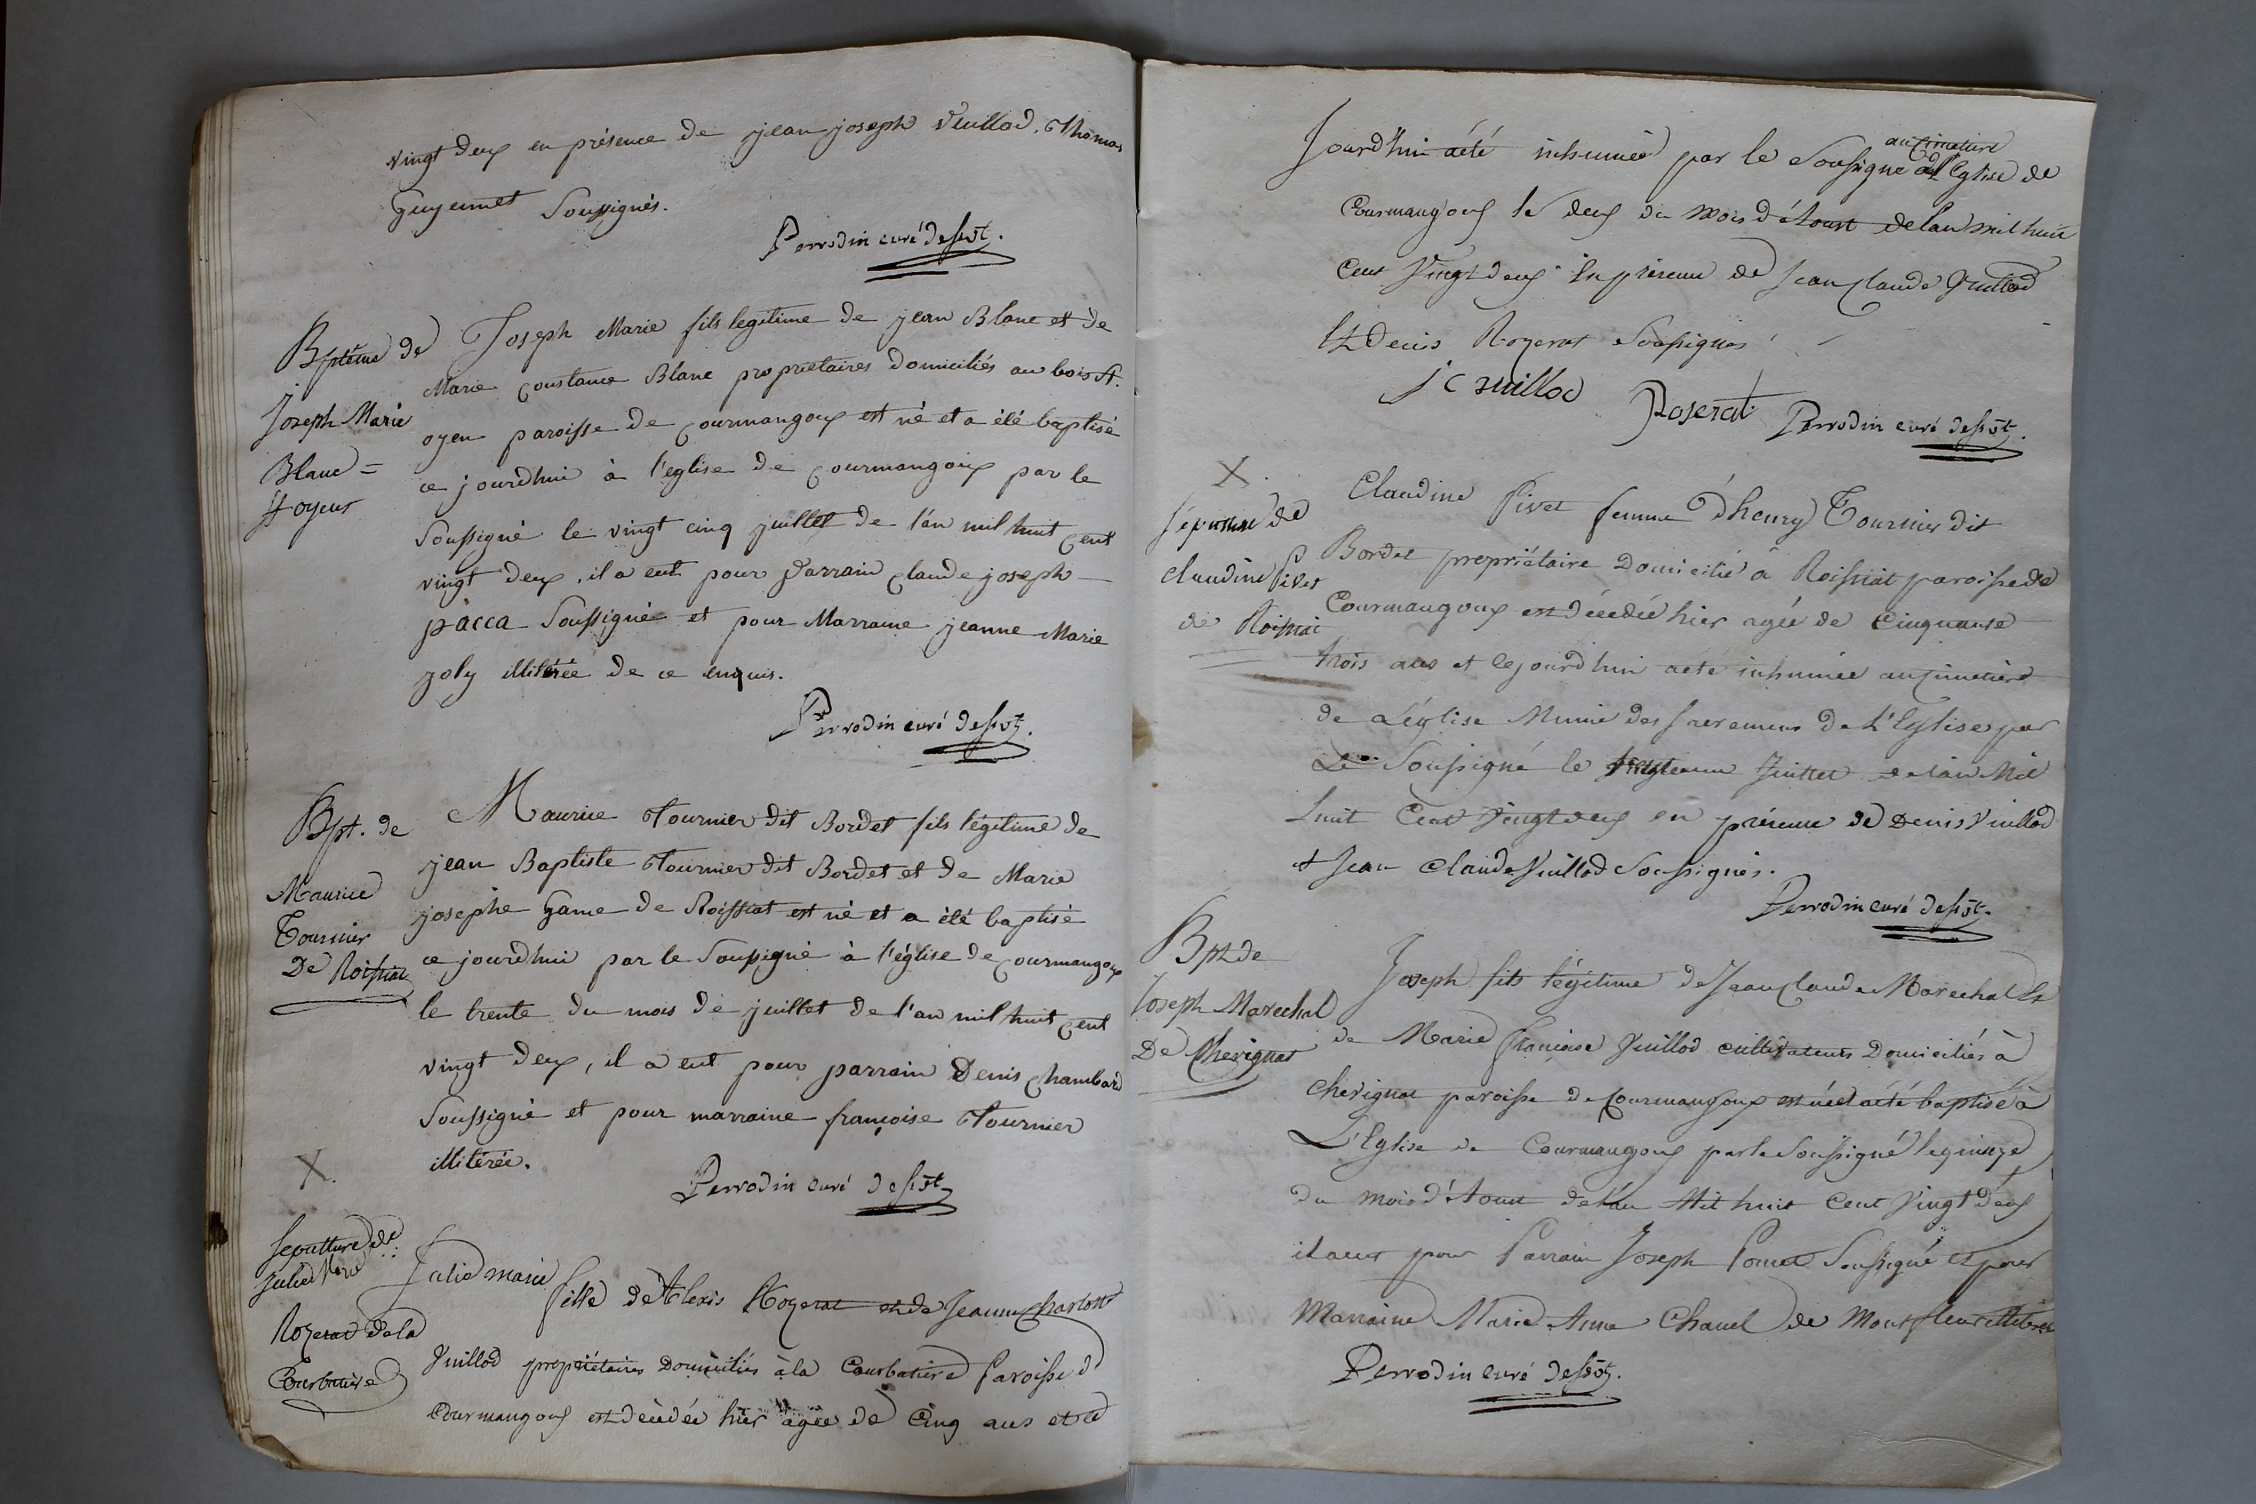 vingt deux en présence de jean joseph Vuillod, Thomas
Guyennet Soussignés.
Perrodin curé dessvt.
Bptême de
Joseph Marie
Blanc =
St oyens
Joseph Marie fils legitime de jean Blanc et de
Marie Constance Blanc proprietaires domiciliés au bois st.
oyen paroisse de Courmangoux est né et a été baptisé
ce jourdhui à l'eglise de Courmangoux par le
Soussigné le vingt cinq juillet de l'an mil huit cent
vingt deux, il a eut pour Parrain Claude joseph
pacca Soussigné et pour Marraine jeanne Marie
joly illitérée de ce enquis.
Perrodin curé dessvt.
Bpt. de
Maurice
Tournier
De Roissiat
Maurice Tournier dit Bordet fils légitime de
jean Baptiste Tournier dit Bordet et de Marie
josephe Game de Roissiat est né et a été baptisé
ce jourdhui par le Soussigné à l'église de Courmangoux
le trente du mois de juillet de l'an mil huit cent
vingt deux, il a eut pour parrain Denis Chambard
Soussigné et pour marraine françoise Tournier
illitérée.
Perrodin curé dessvt
X.
Sepulture de
Julie Marie
Rozerat de la
Courbatière
Julie marie fille de Alexis Rozerat et de Jeanne Charlotte
Vuillod propriétaires Domiciliés à la Courbatiere Paroisse d
Courmangoux est décédée hier agée de Cinq ans et ce
Jourd'hui a été inhumée par le Soussigné au Cimetiere de l'Eglise de
Courmangoux le deux du mois d'Aoust de l'an mil huit
Cent Vingt deux En présence de Jean Claude Vuillod
Et Denis Rozerat Soussignés
J C vuillod Roserat Perrodin curé dessvt.
X.
Sépulture de
Claudine Pivet
de Roissiat
Claudine Pivet femme d'henry Tournier dit
Bordet propriétaire Domicilié à Roissiat paroisse de
Courmangoux est décédée hier agée de Cinquante
trois ans et Cejourd'hui a été inhumée au Cimetiere
de L'église Munie des Sacremens de L'Eglise par
Le Soussigné le juillet de l'an Mil
huit Cent Vingt deux en présence de Denis Vuillod
et Jean Claude Vuillod Soussignés.
Perrodin curé dessvt.
Bpt de
Joseph Marechal
De Chevignat
Joseph fils légitime de Jean Claude Marechal Et
de Marie françoise Vuillod cultivateurs Domiciliés à
Chevignat paroisse de Courmangoux est né et a été baptisé à
L'Eglise de Courmangoux par le Soussigné le quinze
du mois d'Aout de l'an Mil huit Cent Vingt deux
il a eut pour Parrain Joseph Pomet Soussigné et pour
Marraine Marie Anne Chanel de Montfleur illitérée
Perrodin curé dessvt.